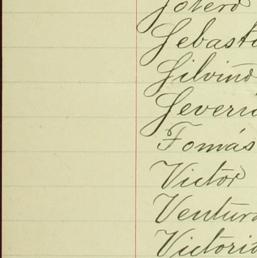 Sotero
Sebasti
Silvino
Severi
Tomás
Victor
Ventura
Victoria